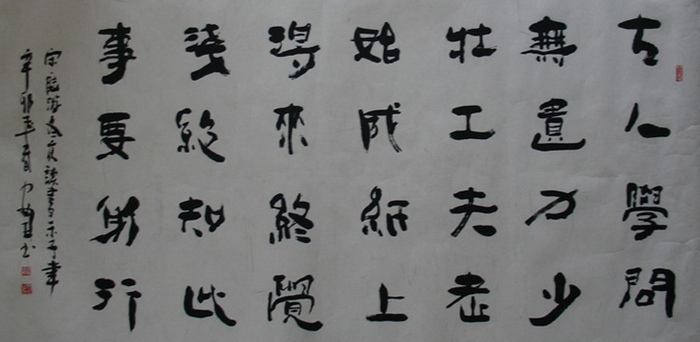 古人學問
無遺力少
壯工夫老
始成紙上
得來終覺
淺絶知此
事要躬行
宋陸游冬夜讀書示子聿
辛卯年夏書